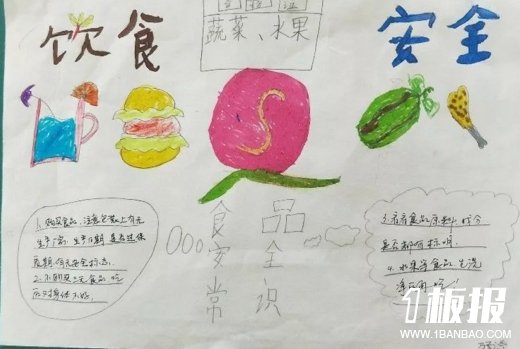 饮食 安全
蔬菜、水果
1.购买食品,注意包装上有无
生产厂家,生产日期,是否过保
质期,有无安全标志。
2.不购买三无食品,吃
后对身体不好。
食品
安全
常识
3.看看食品原料,
是否都有标明。
4.水果等食品,先洗
净再 吃!
1板报
WWW.1BANBAO.COM